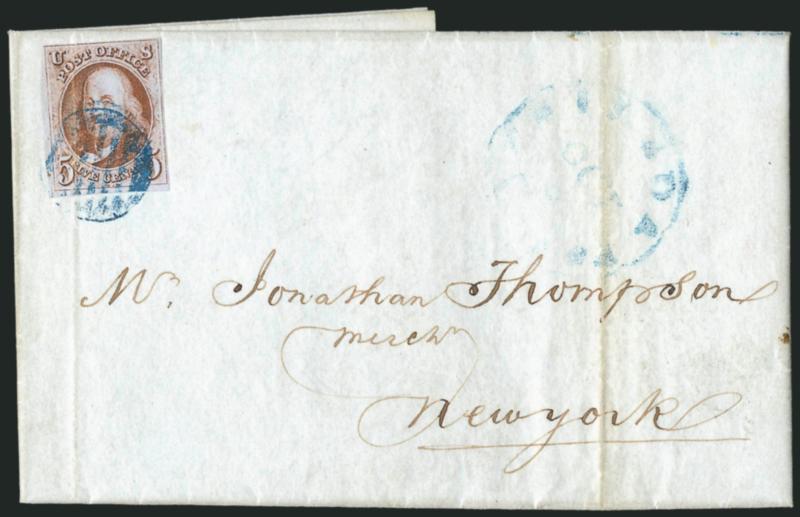 U S
POST OFFICE
5 FIVE CENTS 5
Mr. Jonathan Thompson
Merchn
New york